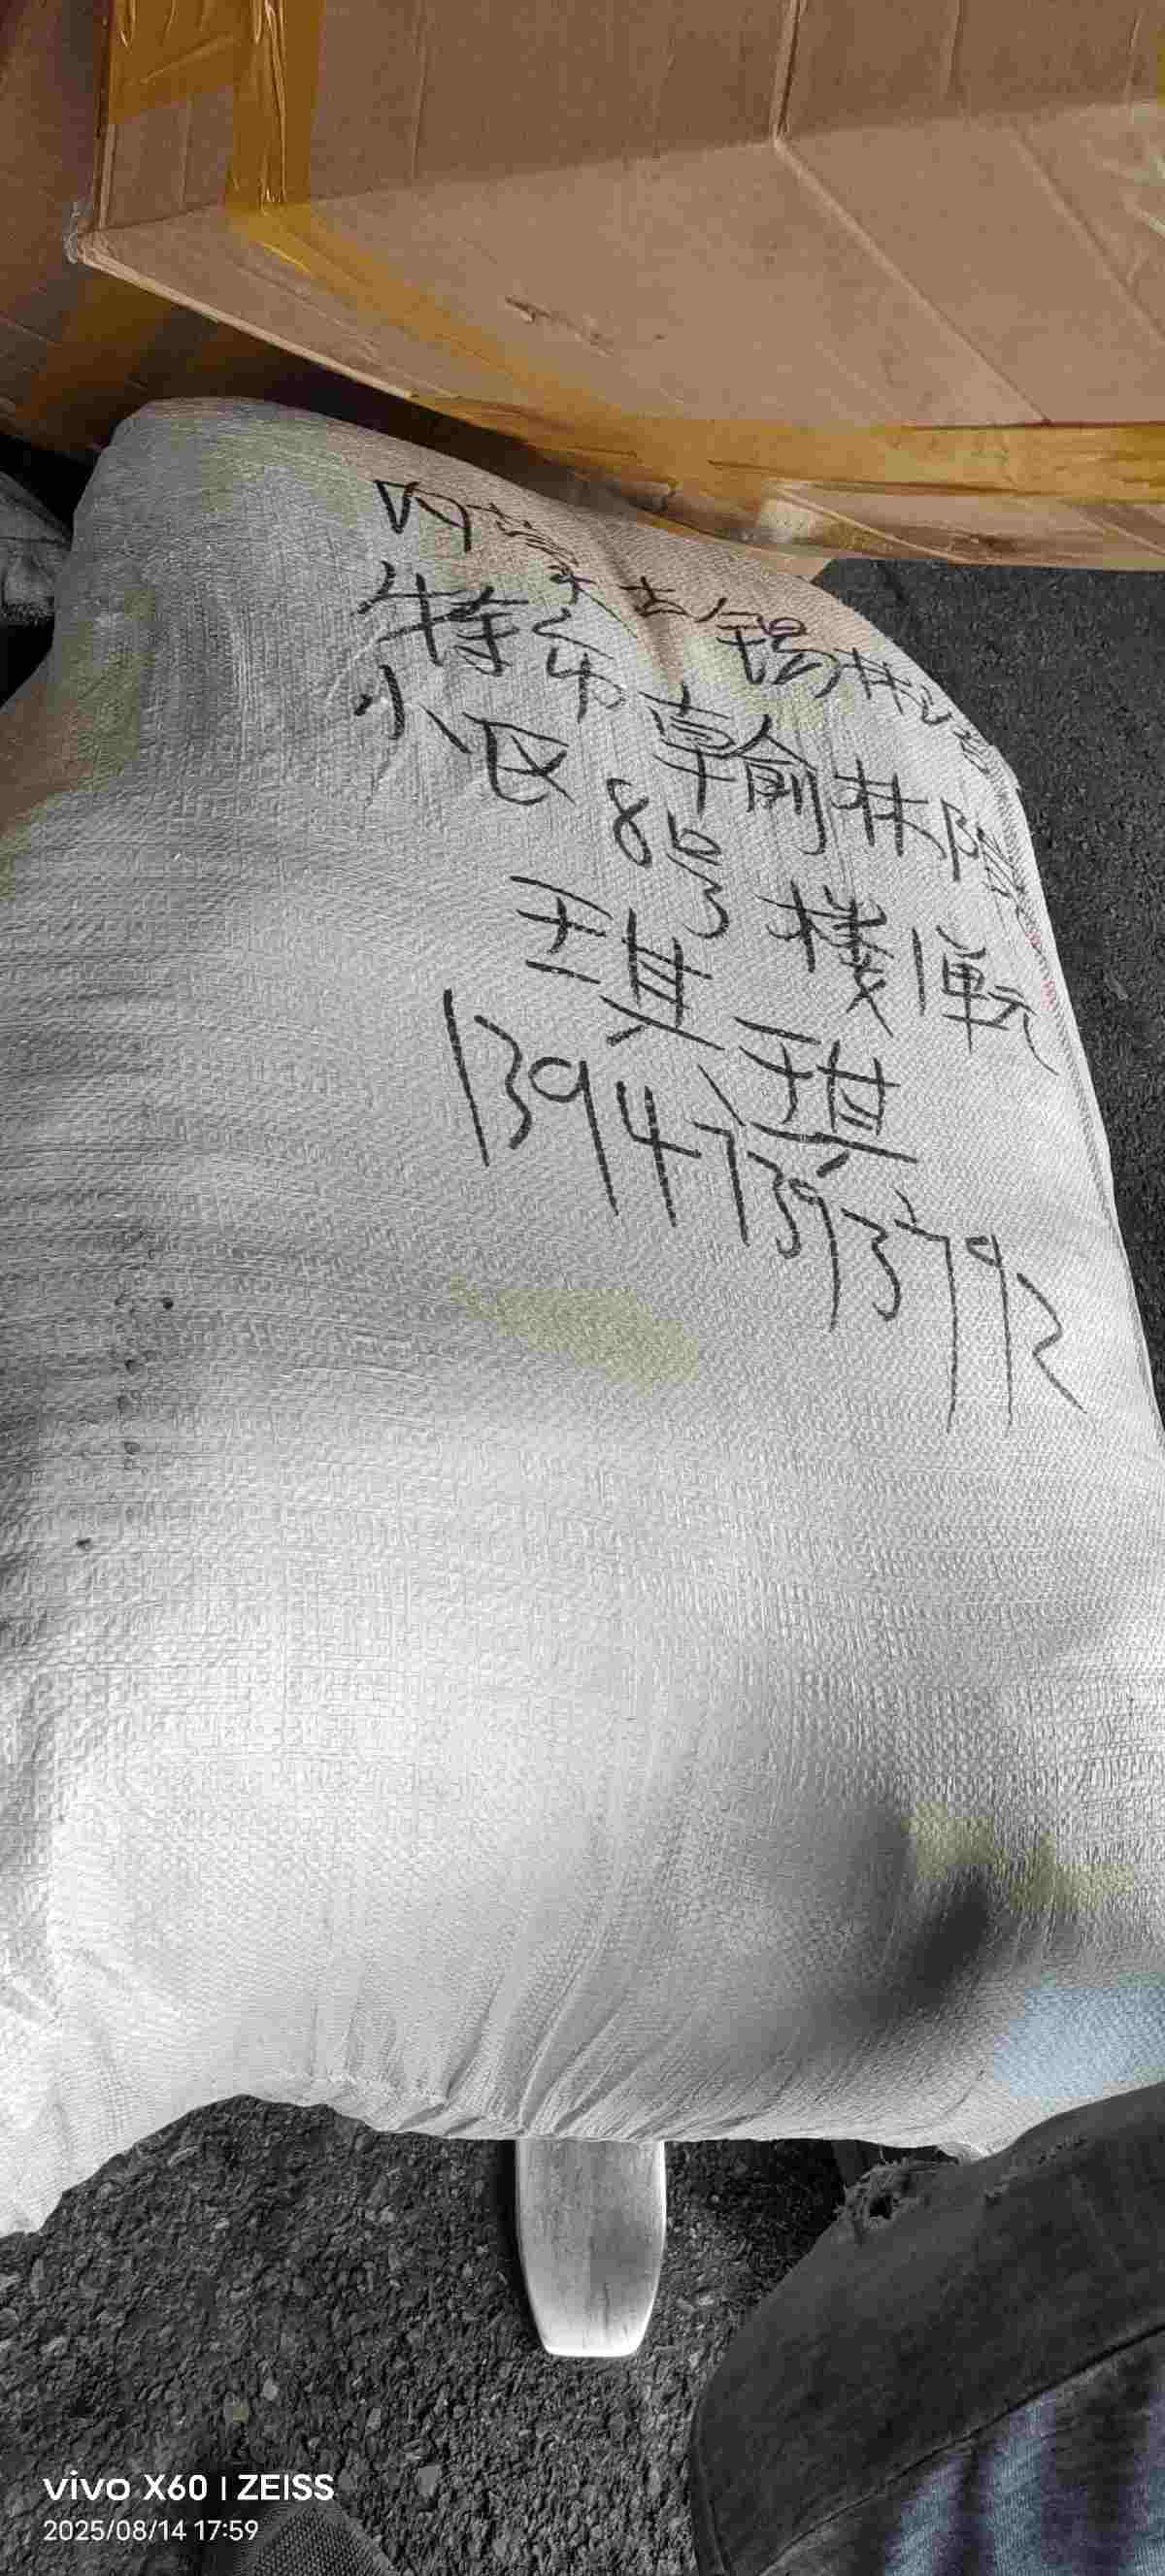 内蒙古锡林郭
特乍草翰林院
小区8号楼1单元
王其琪
13947393792
vivo X60 | ZEISS
2025/08/14 17:59